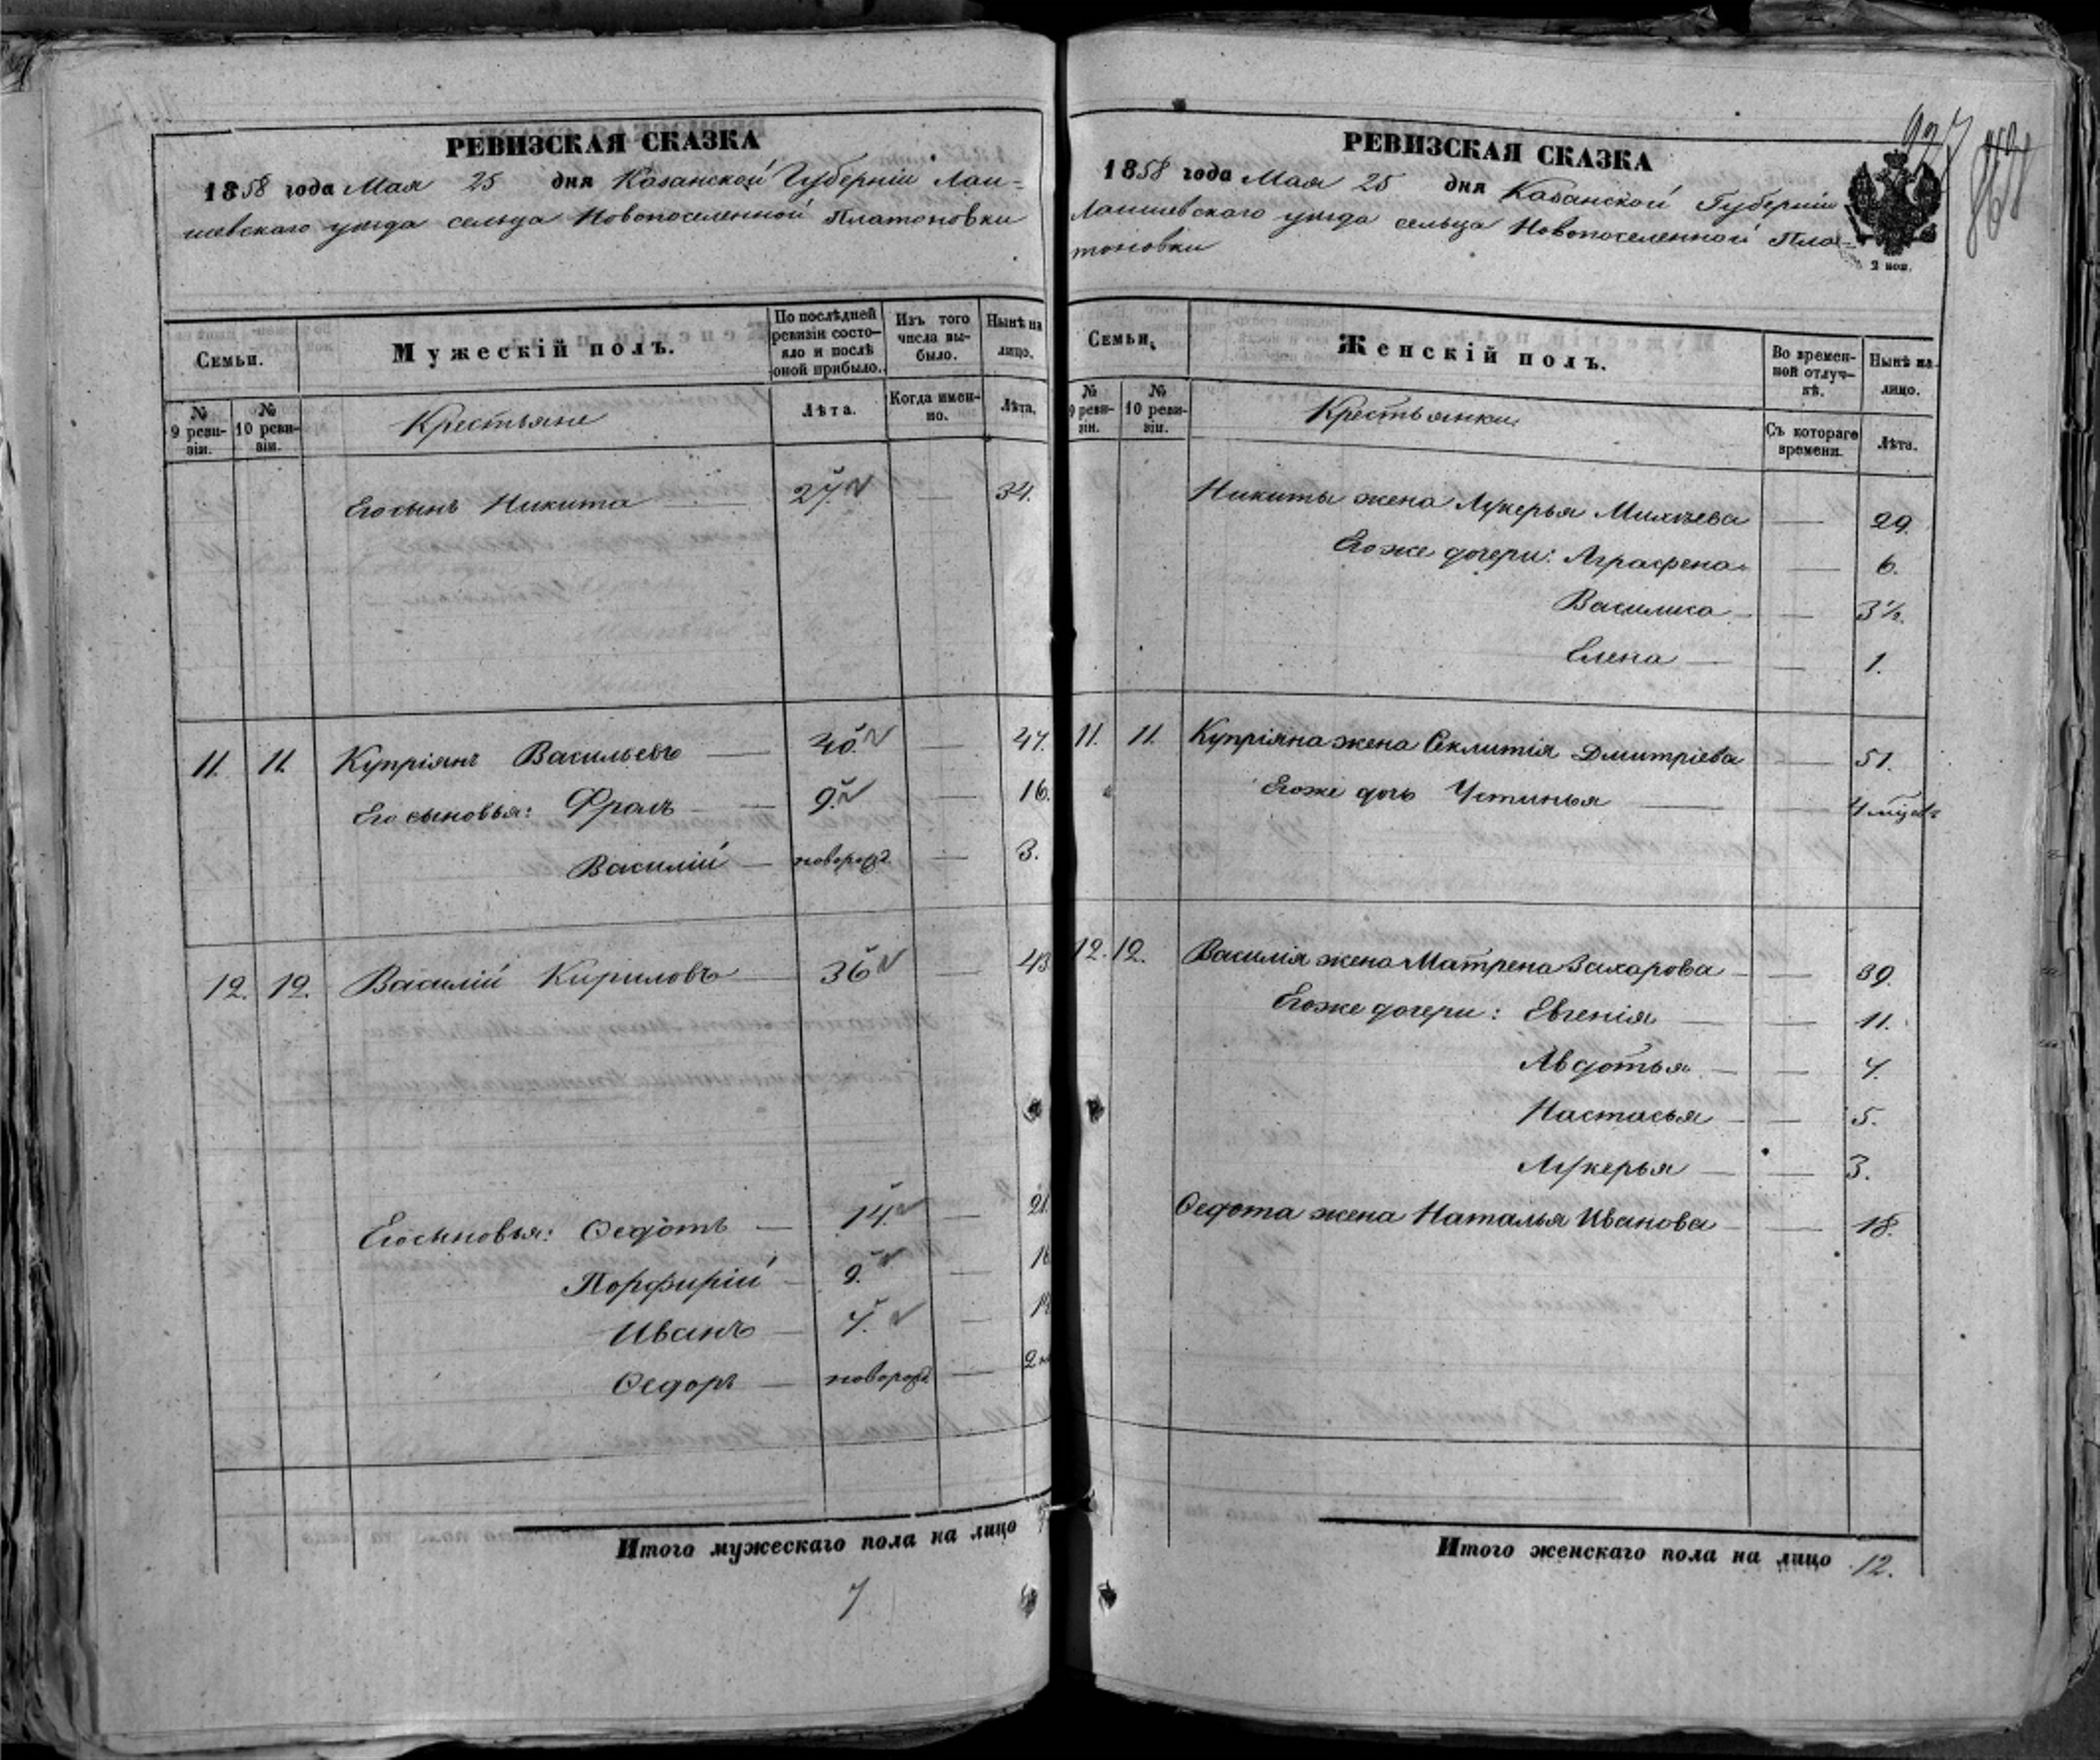 РЕВИЗСКАЯ СКАЗКА
1858 года Мая 25 дня Казанской Губерніи Лаи-
шевскаго уѣзда сельца Новопоселенной Платоновки
Семьи.
Мужескій полъ.
По послѣдней ревизіи состояло и послѣ оной прибыло.
Изъ того числа выбыло.
Нынѣ на лицо.
№ 9 ревизіи.
№ 10 ревизіи.
Крестьяне
Лѣта.
Когда именно.
Лѣта.
Его сынъ Никита — 27. — 34.
11. 11. Купріянъ Васильевъ — 40. — 47.
Его сыновья: Фролъ — 9. — 16.
Василій — новорожд. — 3.
12. 12. Василій Кириловъ — 36 — 43
Его сыновья: Ѳедотъ — 14. — 21.
Порфирій — 9. — 16
Иванъ — 4. —
Ѳедоръ — новорожд. — 2
Итого мужескаго пола на лицо
7
РЕВИЗСКАЯ СКАЗКА
1858 года Мая 25 дня Казанской Губерніи
Лаишевскаго уѣзда сельца Новопоселенной Пла-
тоновки
2 коп.
927
Семьи.
Женскій полъ.
Во временной отлучкѣ.
Нынѣ на лицо.
№ 9 ревизіи.
№ 10 ревизіи.
Крестьянки
Съ котораго времени.
Лѣта.
Никиты жена Лукерья Михѣева — 29.
Его же дочери: Аграфена — 6.
Василиса — 3½.
Елена — 1.
11. 11. Купріяна жена Секлитія Дмитріева — 51.
Его же дочь Устинья — 4 мѣсяц
12. 12. Василія жена Матрена Захарова — 39.
Его же дочери: Евгенія — 11.
Авдотья — 7.
Настасья — 5.
Лукерья — 3.
Ѳедота жена Наталья Иванова — 18.
Итого женскаго пола на лицо 12.